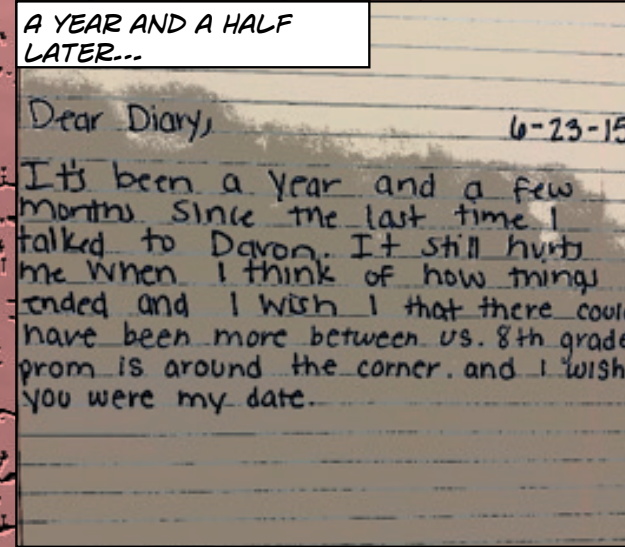 A YEAR AND A HALF
LATER...
Dear Diary,
6-23-15
It's been a year and a few
months since the last time I
talked to Davon. It still hurts
me when I think of how things
ended and I wish I that there could
have been more between us. 8th grade
prom is around the corner. and I wish
you were my date.